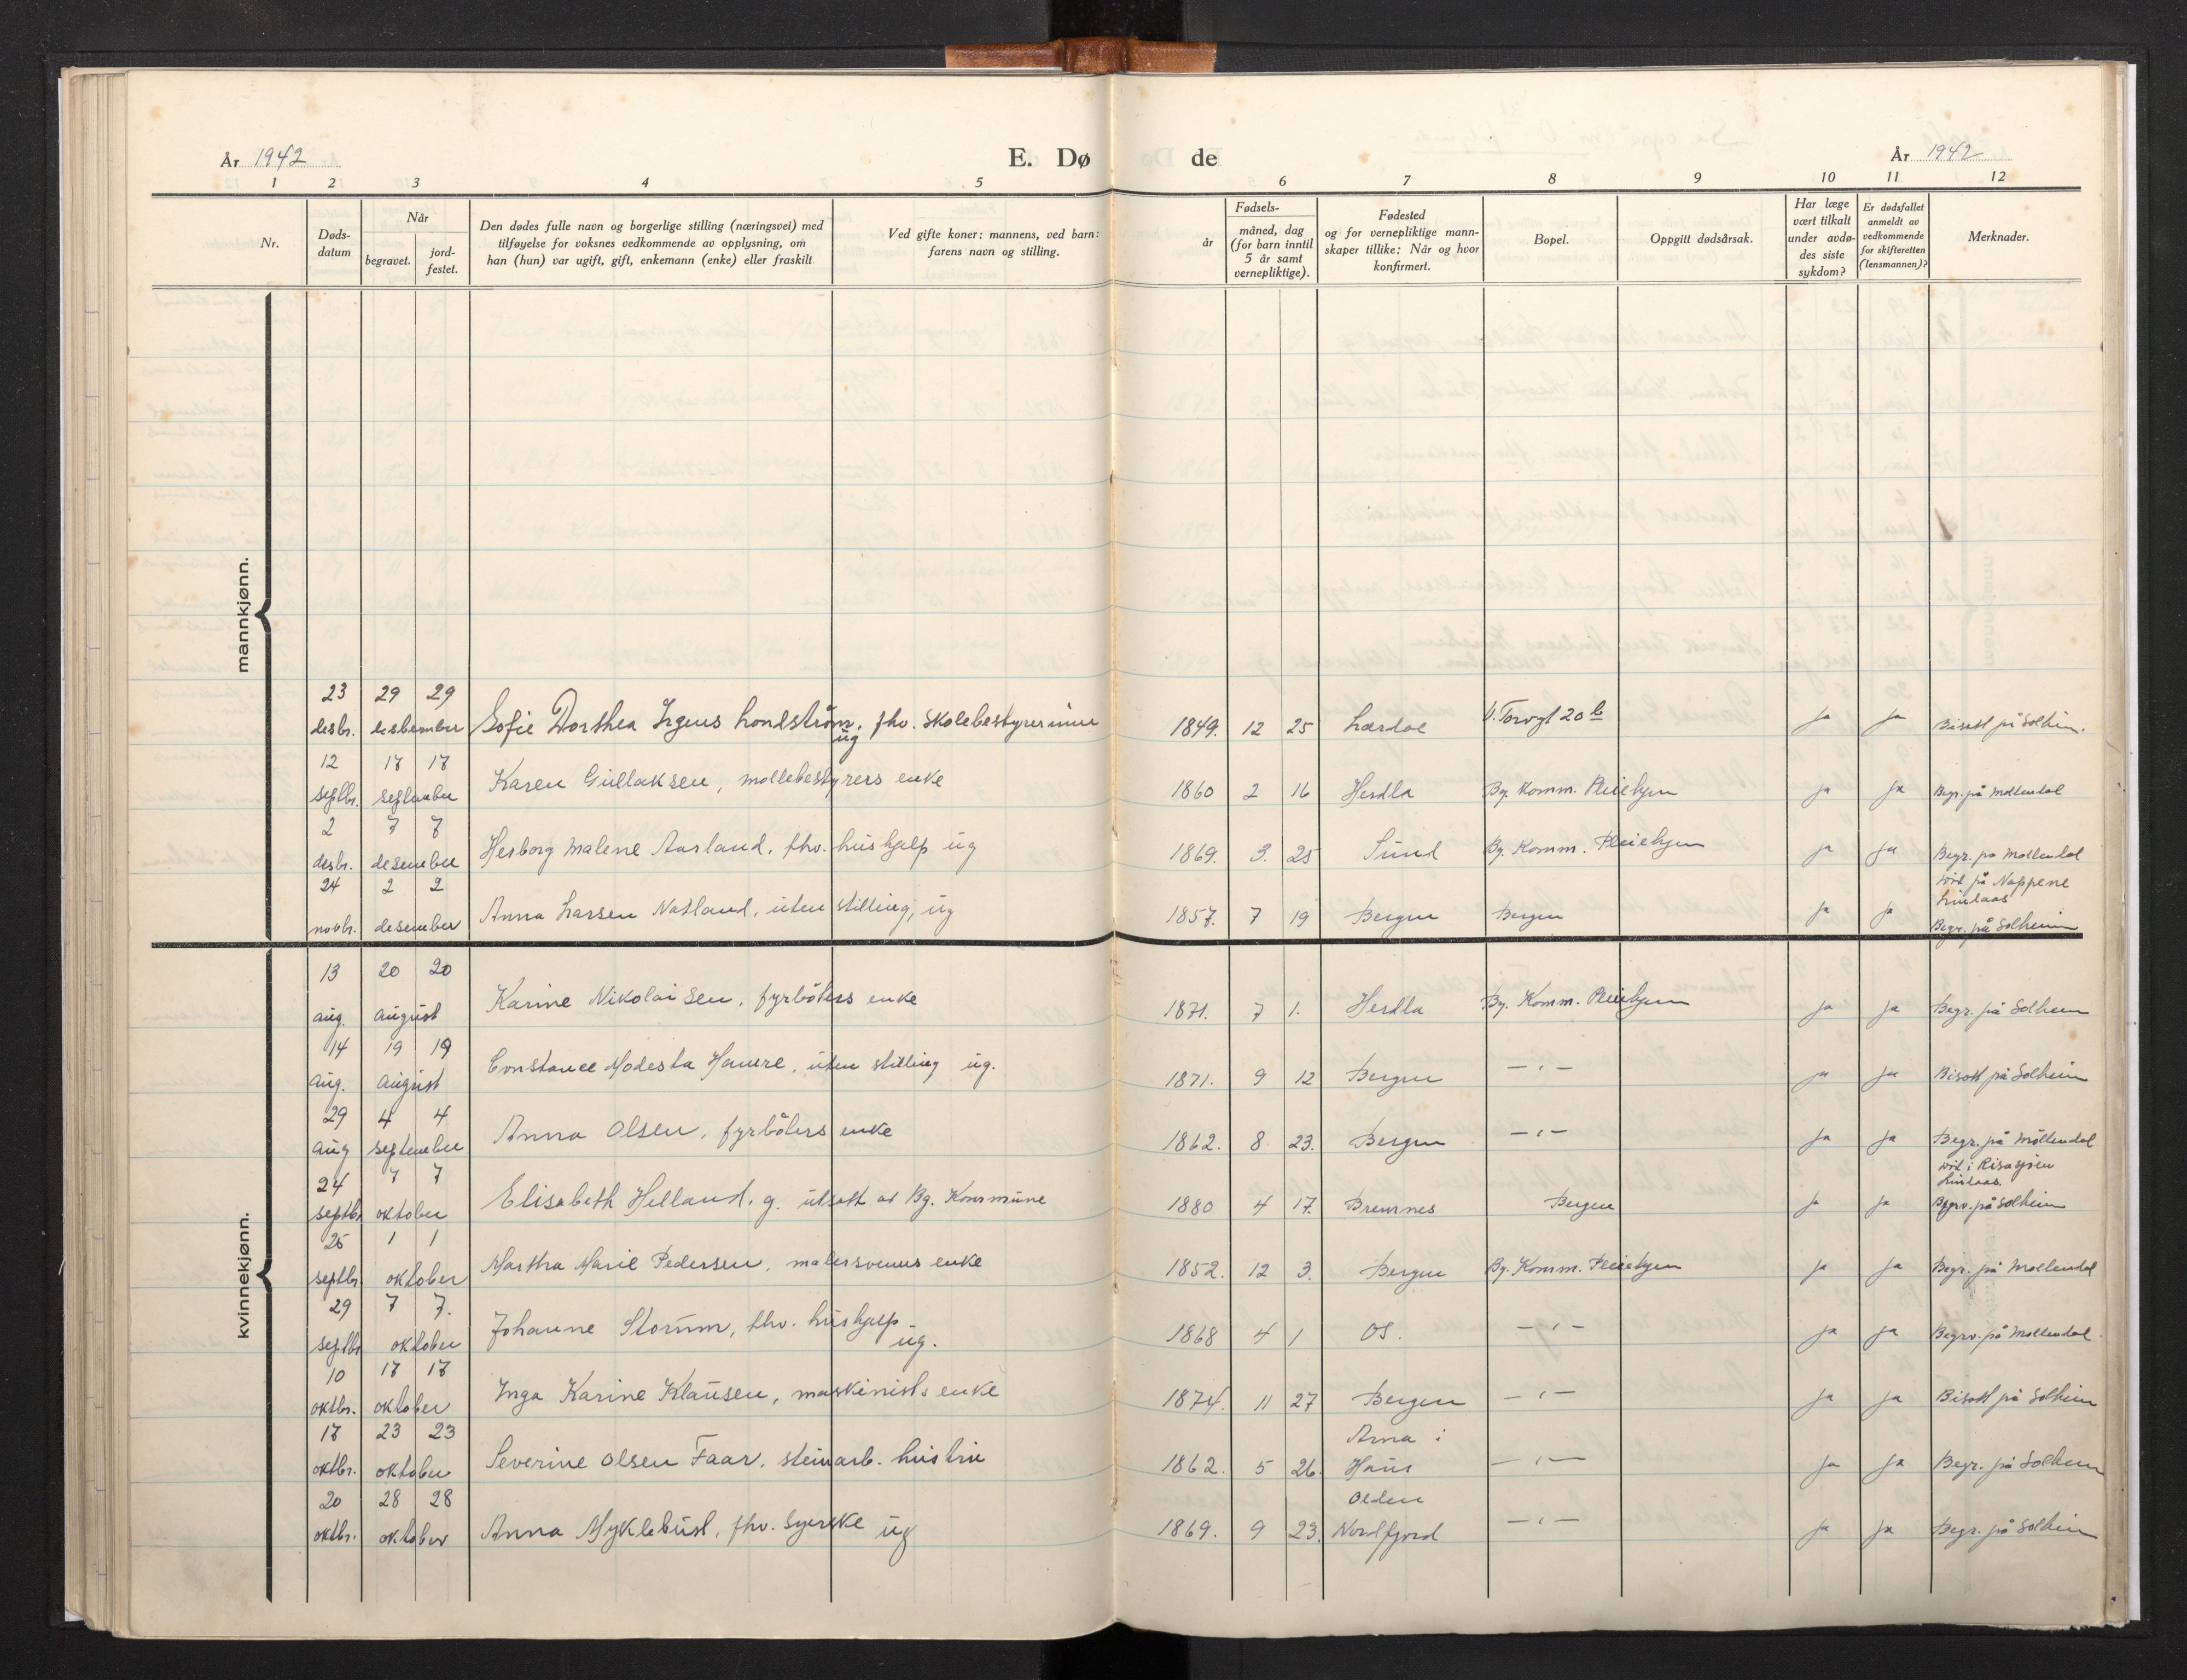 År 1942
E. Dø
de
År 1942
1 2 3 4 5 6 7 8 9 10 11 12
Nr.
Døds-
datum
Når
begravet.
jord-
festet.
Den dødes fulle navn og borgerlige stilling (næringsvei) med
tilføyelse for voksnes vedkommende av opplysning, om
han (hun) var ugift, gift, enkemann (enke) eller fraskilt
Ved gifte koner: mannens, ved barn:
farens navn og stilling.
Fødsels-
år
måned, dag
(for barn inntil
5 år samt
vernepliktige).
Fødested
og for vernepliktige mann-
skaper tillike: Når og hvor
konfirmert.
Bopel.
Oppgitt dødsårsak.
Har læge
vært tilkalt
under avdø-
des siste
sykdom?
Er dødsfallet
anmeldt av
vedkommende
for skifteretten
(lensmannen)?
Merknader.
mannkjønn.
23 29 29
desbr. Sofie Dorthea Irgens Londström, fhv. skolebestyrerinne ug 1849. 12 25 Lærdal V. Torvgt 20 b ja ja Bisatt på Solheim.
12 17 17
septbr. september Karen Gullaksen, møllebestyrers enke 1860 2 16 Herdla Bg. Komm. Pleiehjem ja ja Begr. på Møllendal
2 7 7
desbr. desember Herborg Malene Aarland, fhv. hushjelp ug 1869. 3. 25 Sund Bg. Komm. Pleiehjem ja ja Begr. på Møllendal
24 2 2
novbr. desember Anna Larsen Natland, uten stilling, ug 1857. 7 19 Bergen Bergen ja ja
på Nappene
Lindaas
Begr. på Solheim
kvinnekjønn.
13 20 20
aug. august Karine Nikolaisen, fyrbøters enke 1871. 7 1. Herdla Bg. Komm. Pleiehjem ja ja Begr. på Solheim
14 19 19
aug. august Constance Modesta Hamre, uten stilling ug. 1871. 9 12 Bergen — " — ja ja Bisatt på Solheim
29 4 4
aug september Anna Olsen, fyrbøters enke 1862. 8. 23. Bergen — " — ja ja Begr. på Møllendal
24 7 7
septbr oktober Elisabeth Helland, g. utsatt av Bg. Kommune 1880 4 17. Bremnes Bergen ja ja
Lindaas.
Begrv. på Solheim
25 1 1
septbr. oktober Martha Marie Pedersen, malersvenns enke 1852. 12 3. Bergen Bg. Komm. Pleiehjem ja ja Begr. på Møllendal
29 7 7.
septbr oktober Johanne Storum, fhv. hushjelp ug. 1868 4 1 Os. — " — ja ja Begrv. på Møllendal
10 17 17
oktbr. oktober Inga Karine Klausen, maskinists enke 1874. 11 27 Bergen — " — ja ja Bisatt på Solheim
17 23 23 Arna i
oktbr. oktober Severine Olsen Faar, steinarb. hustru 1862. 5 26. Haus — " — ja ja Begr. på Solheim
20 28 28 Olden
oktbr. oktober Anna Myklebust, fhv. syerske ug 1869. 9 23. Nordfjord — " — ja ja Begr. på Solheim